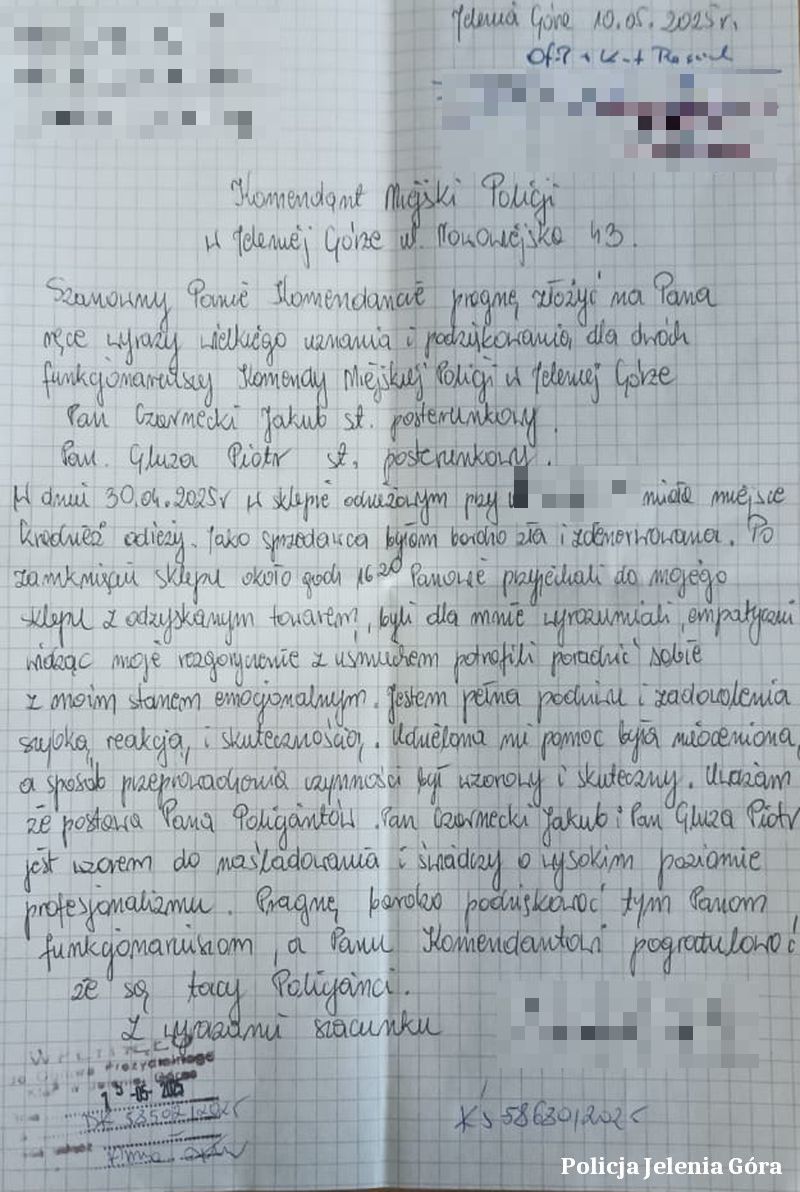 Jelenia Góra 10.05.2025r.
Komendant Miejski Policji
w Jeleniej Górze ul. Nowowiejska 43.
Szanowny Panie Komendancie pragnę złożyć na Pana
ręce wyrazy wielkiego uznania i podziękowania, dla dwóch
funkcjonariuszy Komendy Miejskiej Policji w Jeleniej Górze
Pan Czarnecki Jakub st. posterunkowy.
Pan. Gluza Piotr st. posterunkowy.
W dniu 30.04.2025r w sklepie odzieżowym przy miała miejsce
kradzież odzieży. Jako sprzedawca byłam bardzo zła i zdenerwowana. Po
zamknięciu sklepu około godz 16²⁰ Panowie przyjechali do mojego
sklepu z odzyskanym towarem, byli dla mnie wyrozumiali, empatyczni
widząc moje rozgoryczenie z uśmiechem potrafili poradzić sobie
z moim stanem emocjonalnym. Jestem pełna podziwu i zadowolenia
szybką, reakcją, i skutecznością. Udzielona mi pomoc była nieoceniona,
a sposób przeprowadzenia czynności był wzorowy i skuteczny. Uważam
że postawa Pana Policjantów. Pan Czarnecki Jakub i Pan Gluza Piotr
jest wzorem do naśladowania i świadczy o wysokim poziomie
profesjonalizmu. Pragnę bardzo podziękować tym Panom
funkcjonariuszom, a Panu Komendantowi pogratulować
że są tacy Policjanci.
Z wyrazami szacunku
-05- 2025
5863012025
Policja Jelenia Góra